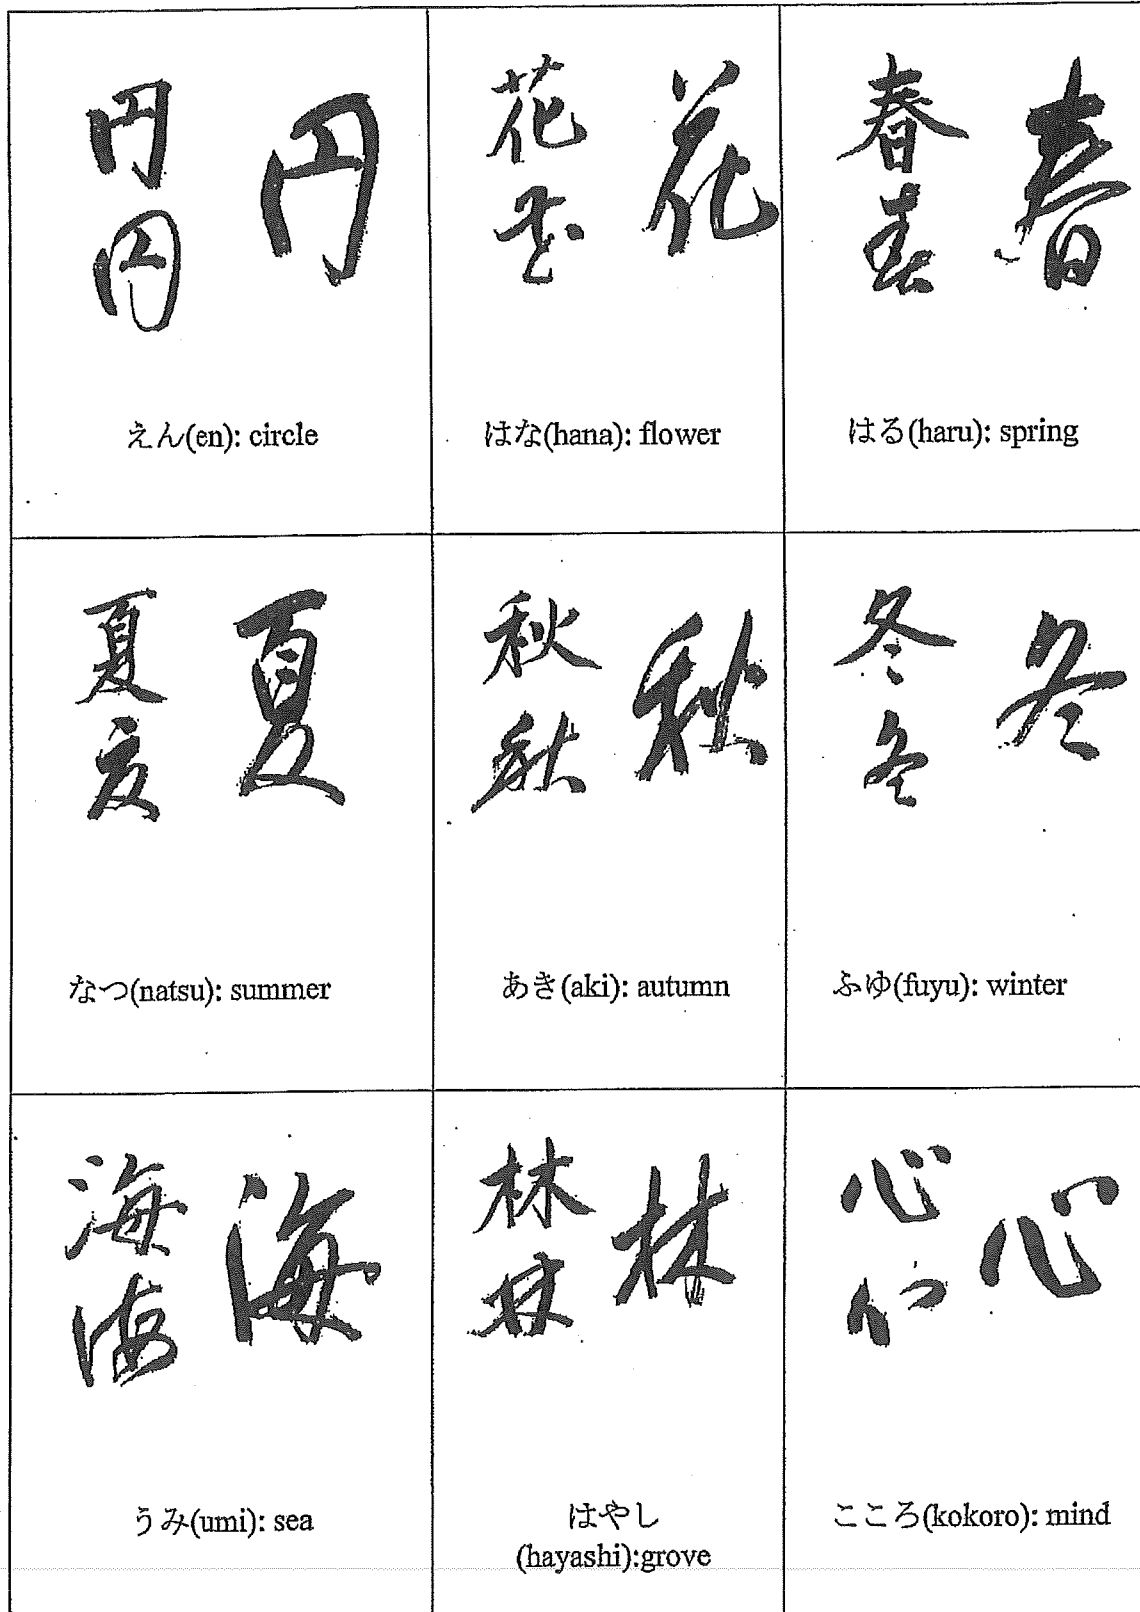 円 円
円
えん(en): circle
花 花
花
はな(hana): flower
春 春
春
はる(haru): spring
夏 夏
夏
なつ(natsu): summer
秋 秋
秋
あき(aki): autumn
冬 冬
冬
ふゆ(fuyu): winter
海 海
海
うみ(umi): sea
林 林
林
はやし
(hayashi):grove
心 心
心
こころ(kokoro): mind